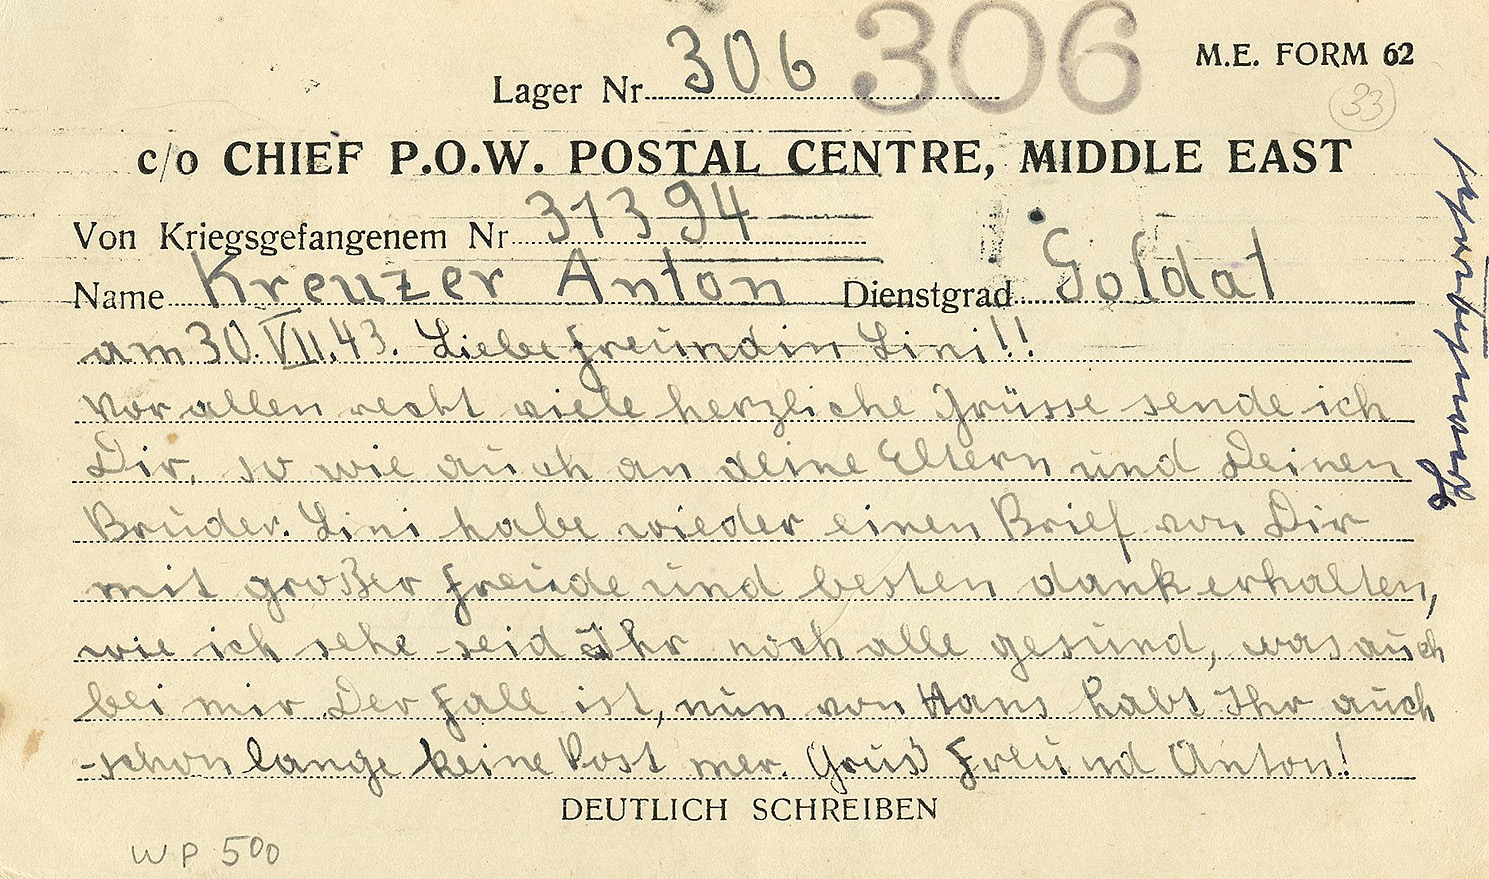 306
M.E. FORM 62
Lager Nr. 306
33
c/o CHIEF P.O.W. POSTAL CENTRE, MIDDLE EAST
Von Kriegsgefangenem Nr. 31394
Name Kreuzer Anton Dienstgrad Soldat
am 30.VII.43. Liebe Freundin Lini!!
vor allen recht viele herzliche Grüsse sende ich
Dir, so wie auch an deine Eltern und Deinen
Bruder. Lini habe wieder einen Brief von Dir
mit großer Freude und besten dank erhalten,
wie ich sehe seid Ihr noch alle gesund, was auch
bei mir Der Fall ist, nun von Hans habt Ihr auch
schon lange keine Post mer. Gruß Freund Anton!
DEUTLICH SCHREIBEN
WP 500